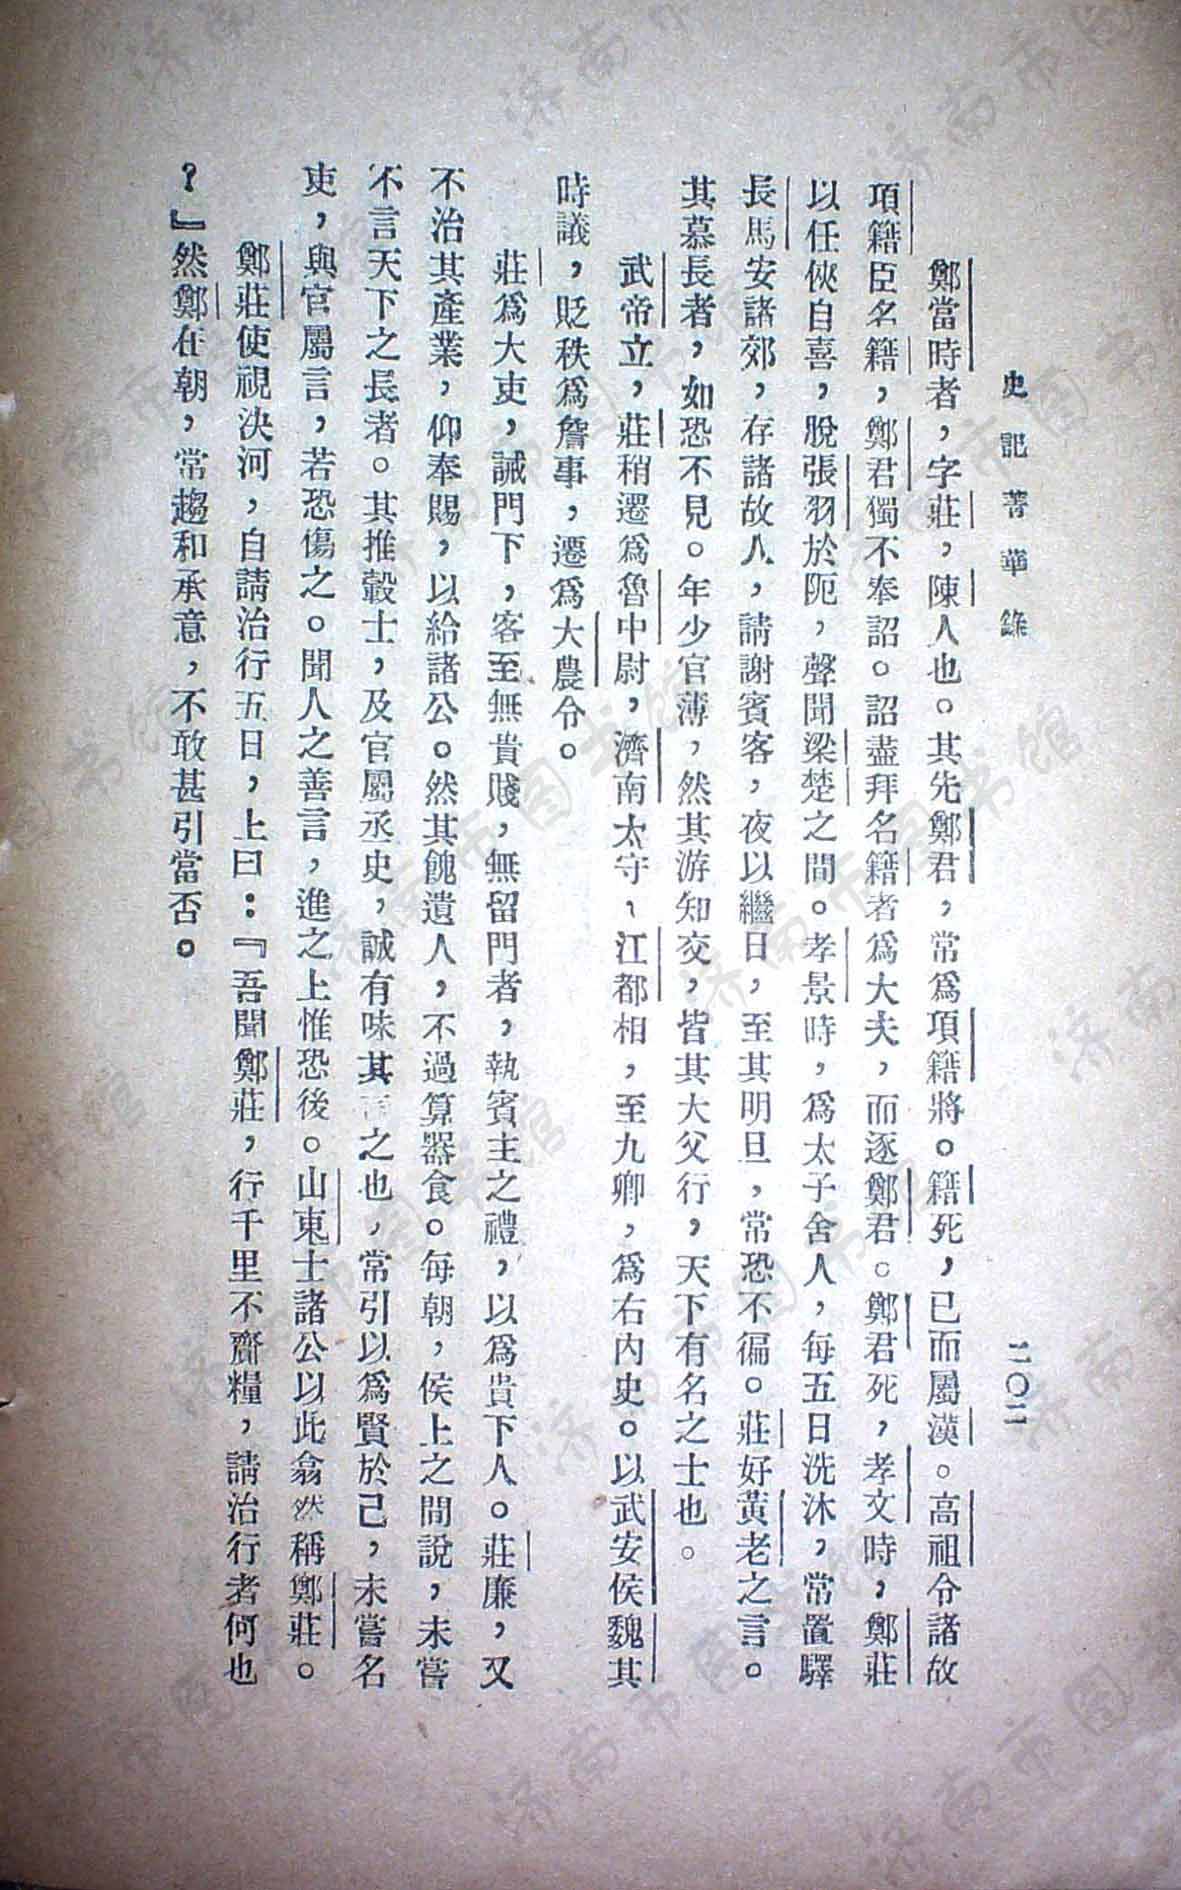 史記菁華錄
二〇二
鄭當時者，字莊，陳人也。其先鄭君，常爲項籍將。籍死，已而屬漢。高祖令諸故
項籍臣名籍，鄭君獨不奉詔。詔盡拜名籍者爲大夫，而逐鄭君。鄭君死，孝文時，鄭莊
以任俠自喜，脫張羽於阨，聲聞梁楚之間。孝景時，爲太子舍人，每五日洗沐，常置驛
長馬安諸郊，存諸故人，請謝賓客，夜以繼日，至其明旦，常恐不徧。莊好黃老之言。
其慕長者，如恐不見。年少官薄，然其游知交，皆其大父行，天下有名之士也。
武帝立，莊稍遷爲魯中尉，濟南太守、江都相，至九卿，爲右內史。以武安侯魏其
時議，貶秩爲詹事，遷爲大農令。
莊爲大吏，誡門下，客至無貴賤，無留門者，執賓主之禮，以爲貴下人。莊廉，又
不治其產業，仰奉賜，以給諸公。然其餽遺人，不過算器食。每朝，侯上之間說，未嘗
不言天下之長者。其推轂士，及官屬丞史，誠有味其言之也，常引以爲賢於己，未嘗名
吏，與官屬言，若恐傷之。聞人之善言，進之上惟恐後。山東士諸公以此翕然稱鄭莊。
鄭莊使視決河，自請治行五日，上曰：『吾聞鄭莊，行千里不齎糧，請治行者何也
？』然鄭在朝，常趨和承意，不敢甚引當否。
济南市图书馆